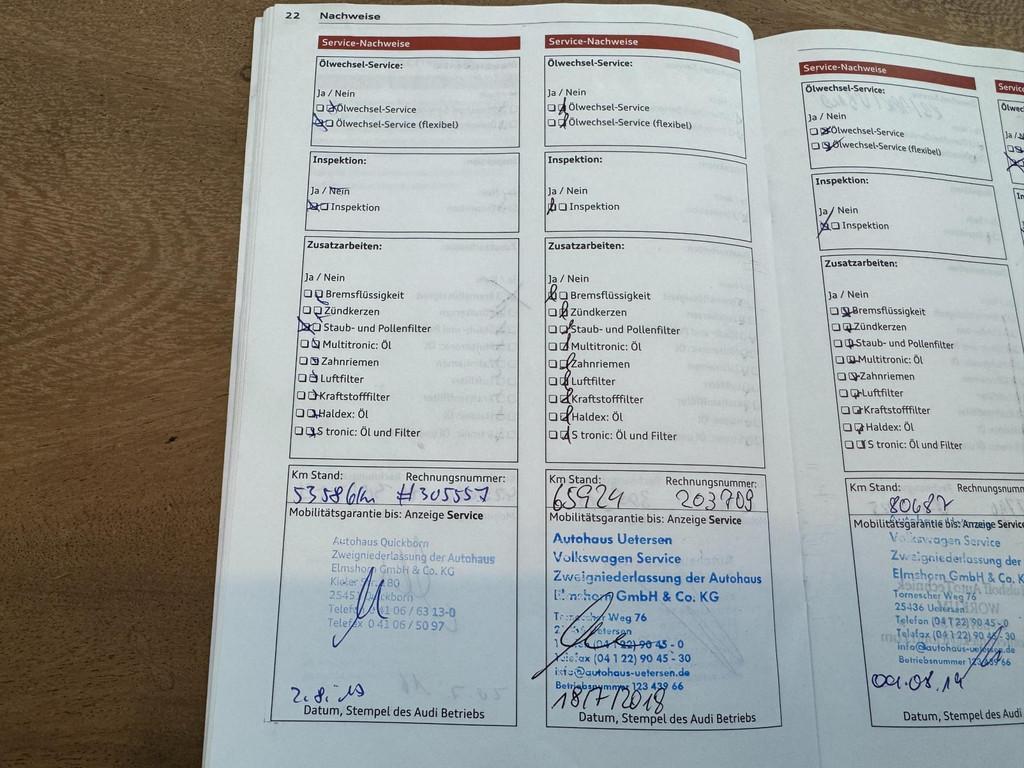 22 Nachweise
Service-Nachweise
Ölwechsel-Service:
Ja / Nein
Ölwechsel-Service
Ölwechsel-Service (flexibel)
Inspektion:
Ja / Nein
Inspektion
Zusatzarbeiten:
Ja / Nein
Bremsflüssigkeit
Zündkerzen
Staub- und Pollenfilter
Multitronic: Öl
Zahnriemen
Luftfilter
Kraftstofffilter
Haldex: Öl
S tronic: Öl und Filter
Km Stand: Rechnungsnummer:
53586km #305557
Mobilitätsgarantie bis: Anzeige Service
Autohaus Quickborn
Zweigniederlassung der Autohaus
Elmshorn GmbH & Co. KG
Kieler 80
25451 Quickborn
Telefon 0 41 06 / 63 13-0
Telefax 0 41 06 / 50 97
Datum, Stempel des Audi Betriebs
Service-Nachweise
Ölwechsel-Service:
Ja / Nein
Ölwechsel-Service
Ölwechsel-Service (flexibel)
Inspektion:
Ja / Nein
Inspektion
Zusatzarbeiten:
Ja / Nein
Bremsflüssigkeit
Zündkerzen
Staub- und Pollenfilter
Multitronic: Öl
Zahnriemen
Luftfilter
Kraftstofffilter
Haldex: Öl
S tronic: Öl und Filter
Km Stand: Rechnungsnummer:
65924 203709
Mobilitätsgarantie bis: Anzeige Service
Autohaus Uetersen
Volkswagen Service
Zweigniederlassung der Autohaus
Elmshorn GmbH & Co. KG
Tornescher Weg 76
Uetersen
(04 1 22) 90 45 - 0
Telefax (04 1 22) 90 45 - 30
info@autohaus-uetersen.de
Betriebsnummer 123 439 66
18/7/2018
Datum, Stempel des Audi Betriebs
Service-Nachweise
Ölwechsel-Service:
Ja / Nein
Ölwechsel-Service
Ölwechsel-Service (flexibel)
Inspektion:
Ja / Nein
Inspektion
Zusatzarbeiten:
Ja / Nein
Bremsflüssigkeit
Zündkerzen
Staub- und Pollenfilter
Multitronic: Öl
Zahnriemen
Luftfilter
Kraftstofffilter
Haldex: Öl
S tronic: Öl und Filter
Km Stand:
80687
Mobilitätsgarantie bis: Anzeige Service
Volkswagen Service
Zweigniederlassung der
Elmshorn GmbH & Co. K
Tornescher Weg 76
25436 Uetersen
Telefon (04 1 22) 90 45 - 0
Telefax (04 1 22) 90 45 - 30
info@autohaus-uetersen.de
Betriebsnummer 123 439 66
Datum, Stempel des Audi